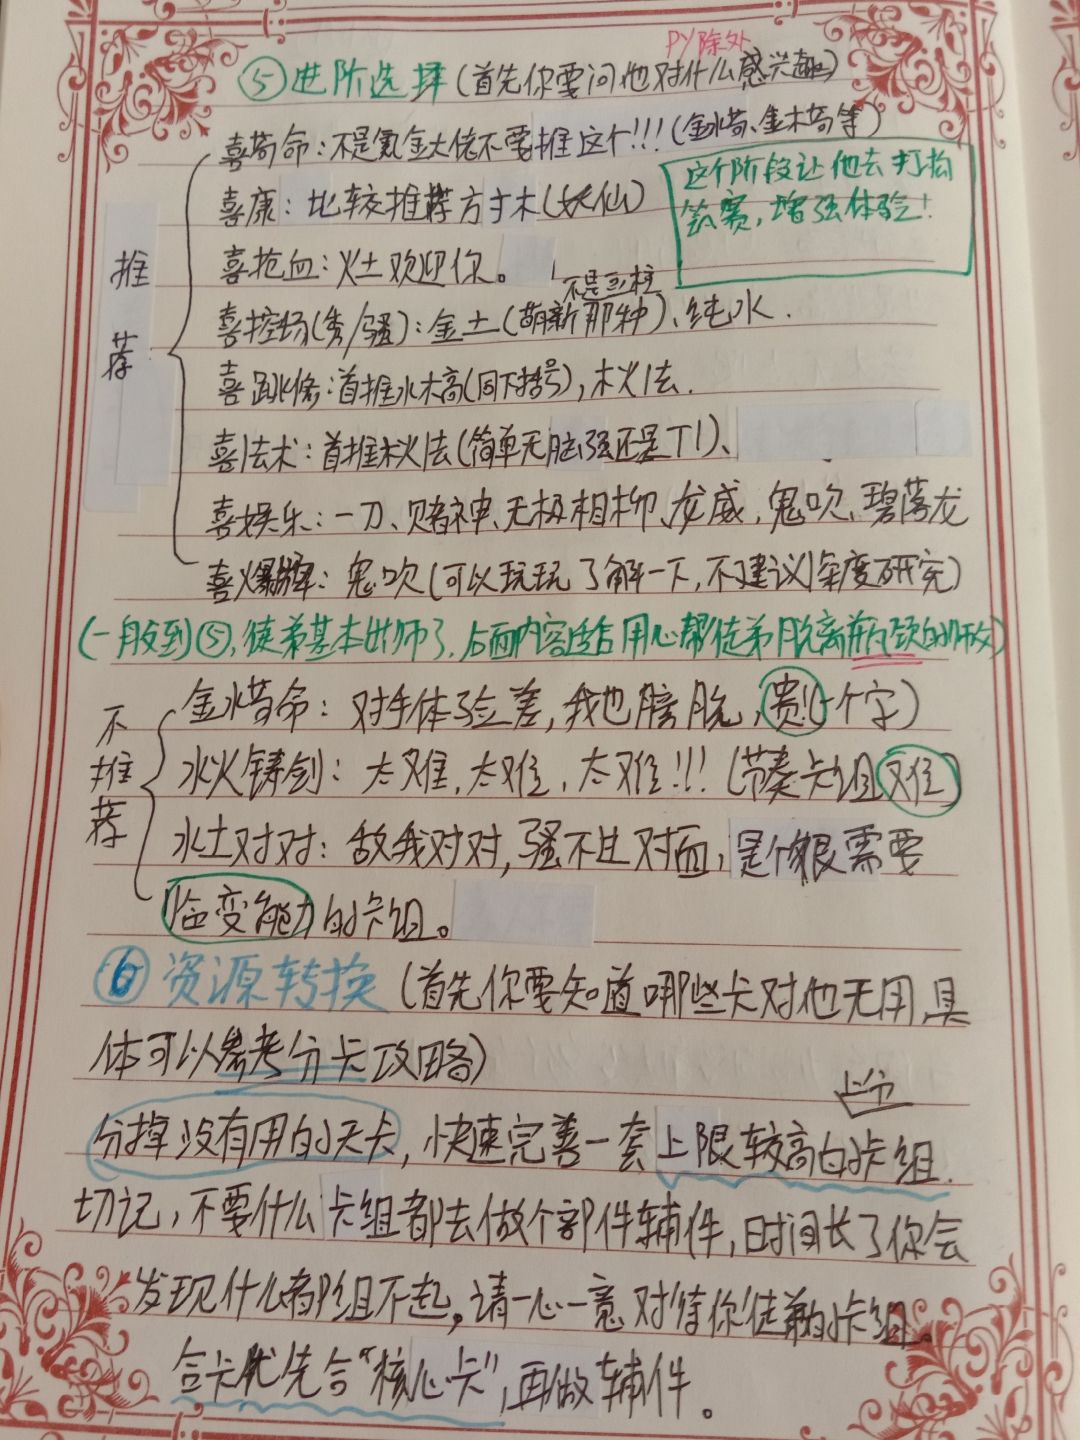 PY除外
⑤进阶选择(首先你要问他对什么感兴趣)
喜苟命:不是氪金大佬不要推这个!!!(金水苟、金木苟等)
喜康:比较推荐方寸木(妖仙)
这个阶段让他去打
赛,增强体验!
推荐
喜抢血:火土欢迎你。
不是三柱
喜控场(秀/骚):金土(萌新那种)、纯水.
喜跳修:首推水木高(同下括号),木火法.
喜法术:首推木火法(简单无脑强还是T1)、
喜娱乐:一刀、赌神、无极相柳、龙威,鬼吹、碧落龙
喜爆牌:鬼吹(可以玩玩了解一下,不建议深度研究)
(一般到⑤,徒弟基本出师了,后面内容适合用心帮徒弟脱离瓶颈的师父)
不推荐
金水苟命:对手体验差,我也膀胱,贵(一个字)
水火铸剑:太难,太难,太难!!!(节奏卡组难)
水土对对:敌我对对,骚不过对面,是个很需要
临变能力的卡组。
⑥资源转换(首先你要知道哪些卡对他无用,具
体可以参考分卡攻略)
上分
分掉没有用的天卡,快速完善一套上限较高的卡组.
切记,不要什么卡组都去做个部件辅件,时间长了你会
发现什么都组不起,请一心一意对待你徒弟的卡组。
合卡优先合“核心卡”,再做辅件。